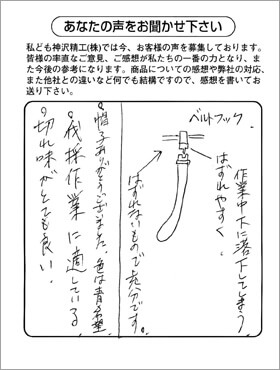 あなたの声をお聞かせ下さい
私ども神沢精工(株)では今、お客様の声を募集しております。
皆様の率直なご意見、ご感想が私たちの一番の力となり、ま
た今後の参考になります。商品についての感想や弊社の対応、
また他社との違いなど何でも結構ですので、感想を書いてお
送り下さい。
ベルトフック
作業中下に落下してしまう。
はずれやすく
はずれないもので充分です。
帽子ありがとうございました。色は青希望
・伐採作業に適している。
・切れ味がとても良い。